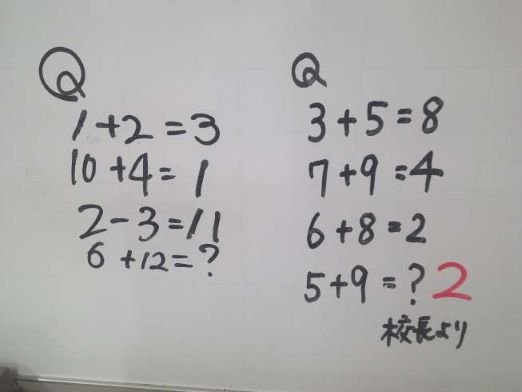 Q
1+2=3
10+4=1
2-3=11
6+12=?
Q
3+5=8
7+9=4
6+8=2
5+9=?2
校長より